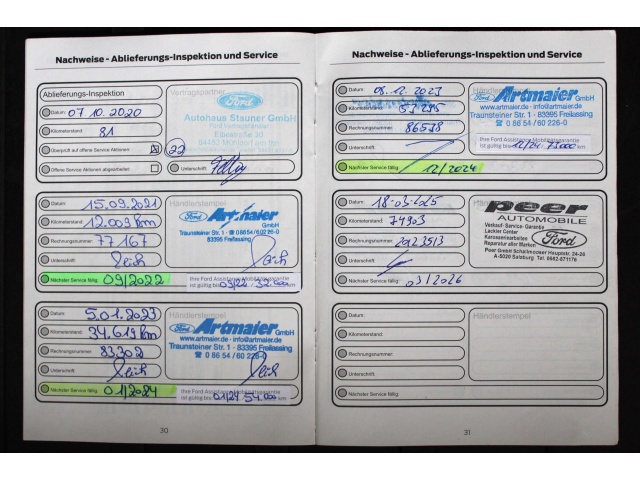 Nachweise - Ablieferungs-Inspektion und Service
Ablieferungs-Inspektion
Datum: 07.10.2020
Kilometerstand: 81
Überprüft auf offene Service Aktionen:
Offene Service Aktionen abgearbeitet:
Vertragspartner
Ford
Autohaus Stauner GmbH
Ford Vertragshändler
22
Unterschrift:
Datum: 15.09.2021
Kilometerstand: 12.009 km
Rechnungsnummer: 77167
Unterschrift:
Nächster Service fällig: 09/2022
Händlerstempel
Ford Artmaier GmbH
Traunsteiner Str. 1
83395 Freilassing
Ihre Ford Assistance Mobilitätsgarantie
ist gültig bis 09/22 32.000 km
Datum: 5.01.2023
Kilometerstand: 34.619 km
Rechnungsnummer: 83302
Unterschrift:
Nächster Service fällig: 01/2024
Händlerstempel
Ford Artmaier GmbH
www.artmaier.de · info@artmaier.de
Traunsteiner Str. 1 · 83395 Freilassing
0 86 54 / 60 226-0
Ihre Ford Assistance Mobilitätsgarantie
ist gültig bis 01/24 54.000 km
30
Nachweise - Ablieferungs-Inspektion und Service
Datum: 08.12.2023
Kilometerstand:
Rechnungsnummer: 86538
Unterschrift:
Nächster Service fällig: 12/2024
Händlerstempel
Ford Artmaier GmbH
www.artmaier.de · info@artmaier.de
Traunsteiner Str. 1 · 83395 Freilassing
0 86 54 / 60 226-0
Ihre Ford Assistance Mobilitätsgarantie
ist gültig bis 12/24 73.000 km
Datum: 18-03-25
Kilometerstand: 74903
Rechnungsnummer: 20123513
Unterschrift:
Nächster Service fällig: 03/2026
Händlerstempel
peer
AUTOMOBILE
Verkauf - Service - Garantie
Lackier Center
Karosseriearbeiten
Reparatur aller Marken
Ford
Peer GmbH Schallmooser Hauptstr. 24-26
A-5020 Salzburg Tel. 0662-871176
Datum:
Kilometerstand:
Rechnungsnummer:
Unterschrift:
Nächster Service fällig:
Händlerstempel
31